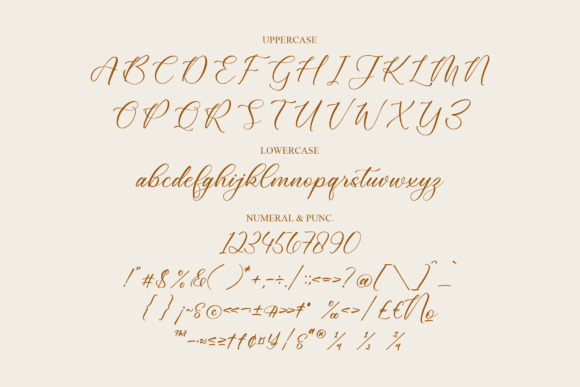 UPPERCASE
A B C D E F G H I J K L M N
O P Q R S T U V W X Y Z
LOWERCASE
abcdefghijklmnopqrstuvwxyz
NUMERAL & PUNC.
1234567890
!"#$%&()*+,-÷./:;<=>?@[\]^_`
{}¡~
©«¬±
»
‰<>/£€№
™
≤≥††¢¤¥¦
ª®¼ ½ ¾